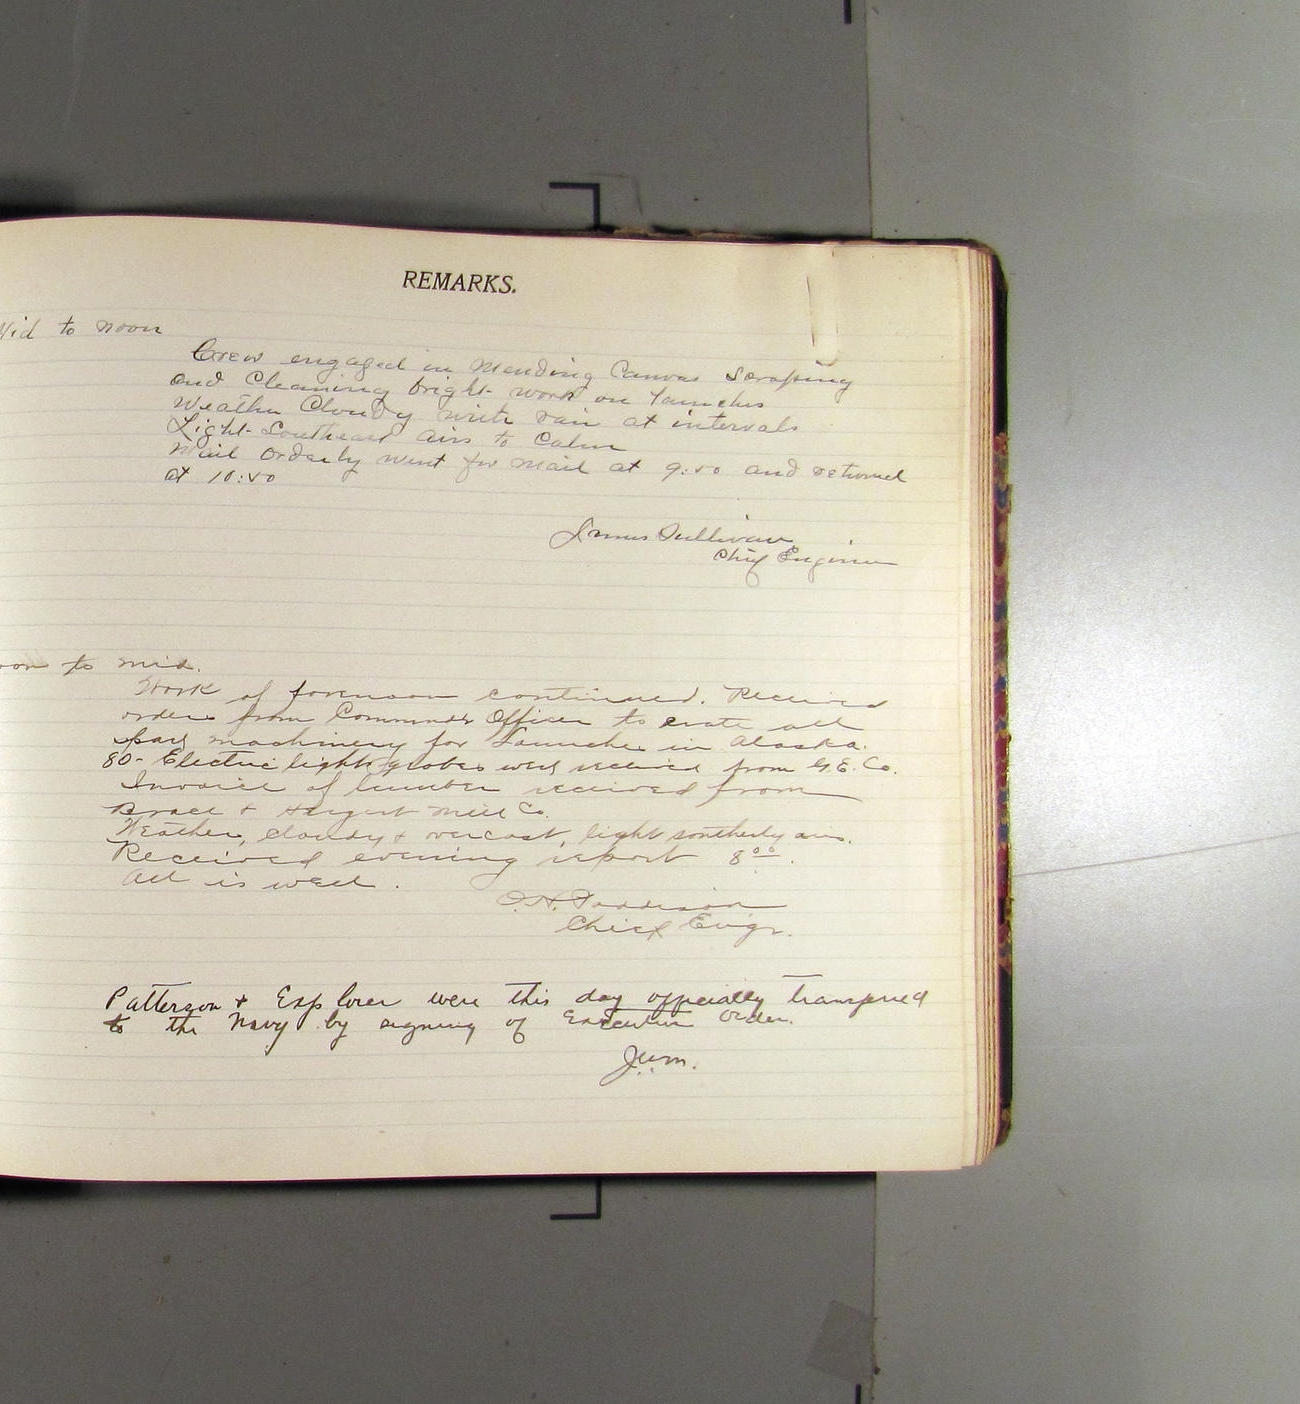 REMARKS.
Mid to noon
Crew engaged in Mending Canvas Scraping
and Cleaning bright work on launches
Weather Cloudy with rain at intervals
Light Southeast airs to Calm
Mail Orderly went for mail at 9:50 and returned
at 10:50
James Sullivan
Chief Engineer
oon to mid.
Work of forenoon continued. Received
orders from Commdr Officer to crate all
machinery for Launches in Alaska.
80- Electric light globes were received from G.E. Co.
Invoice of lumber received from
Brace & Hergert Mill Co.
Weather, cloudy & overcast, light southerly airs.
Received evening report 8⁰⁰.
All is well.
Chief Engr.
Patterson & Explorer were this day officially transferred
to the Navy by signing of Executive Order.